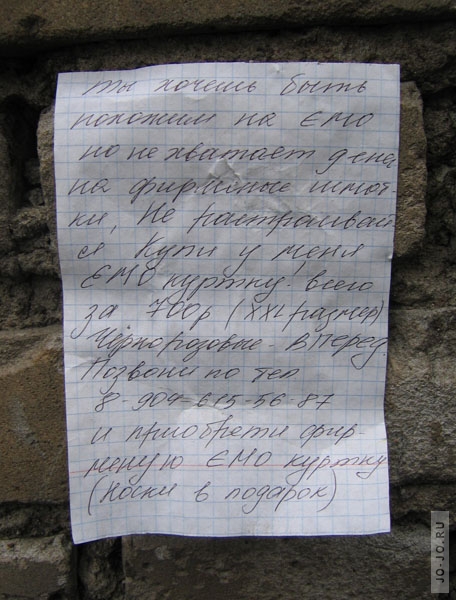 ты хочешь быть
похожим на ЕМО
но не хватает денег
на фирменые шмот-
ки, Не растраивай
ся Купи у меня
ЕМО куртку. всего
за 700р (XXL размер)
Чёрнорозовые - Вперед.
Позвони по тел
8-904-615-56-87
и приобрети фир-
меную ЕМО куртку
(Носки в подарок)
JO-JO.RU